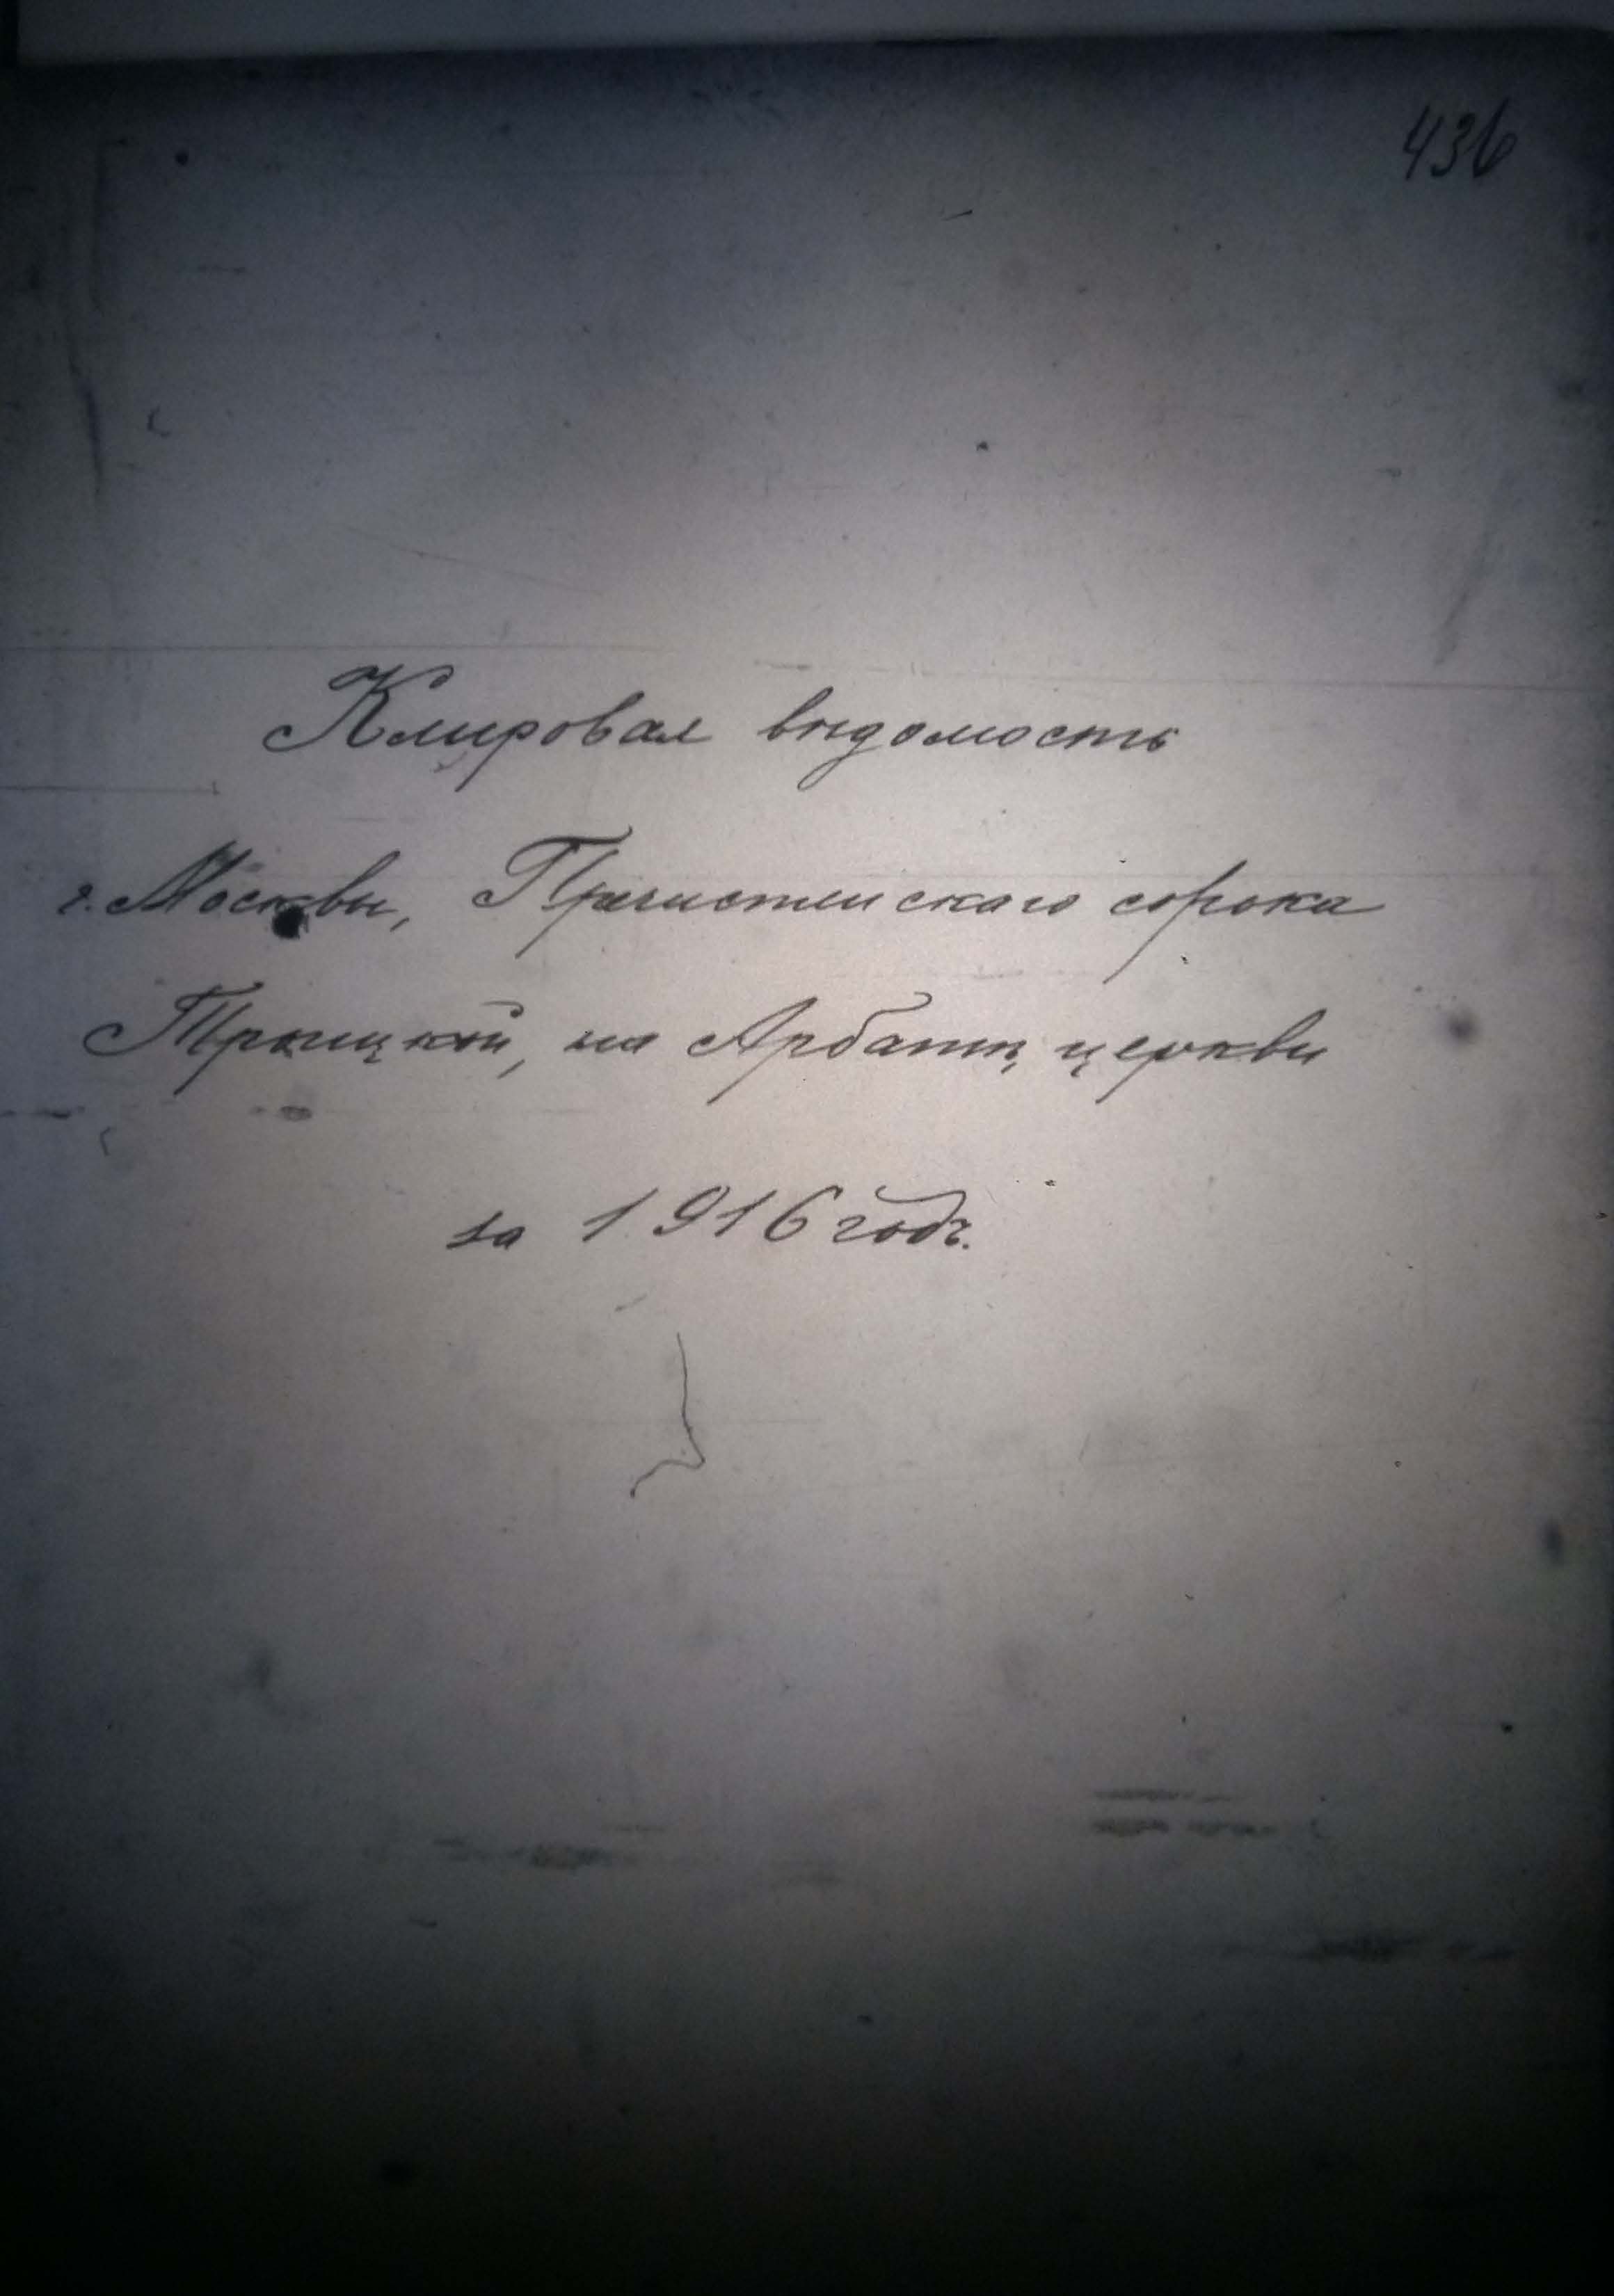 436
Клировая вѣдомость
г. Москвы, Пречистенскаго сорока
Троицкой, на Арбатѣ, церкви
за 1916 годъ.